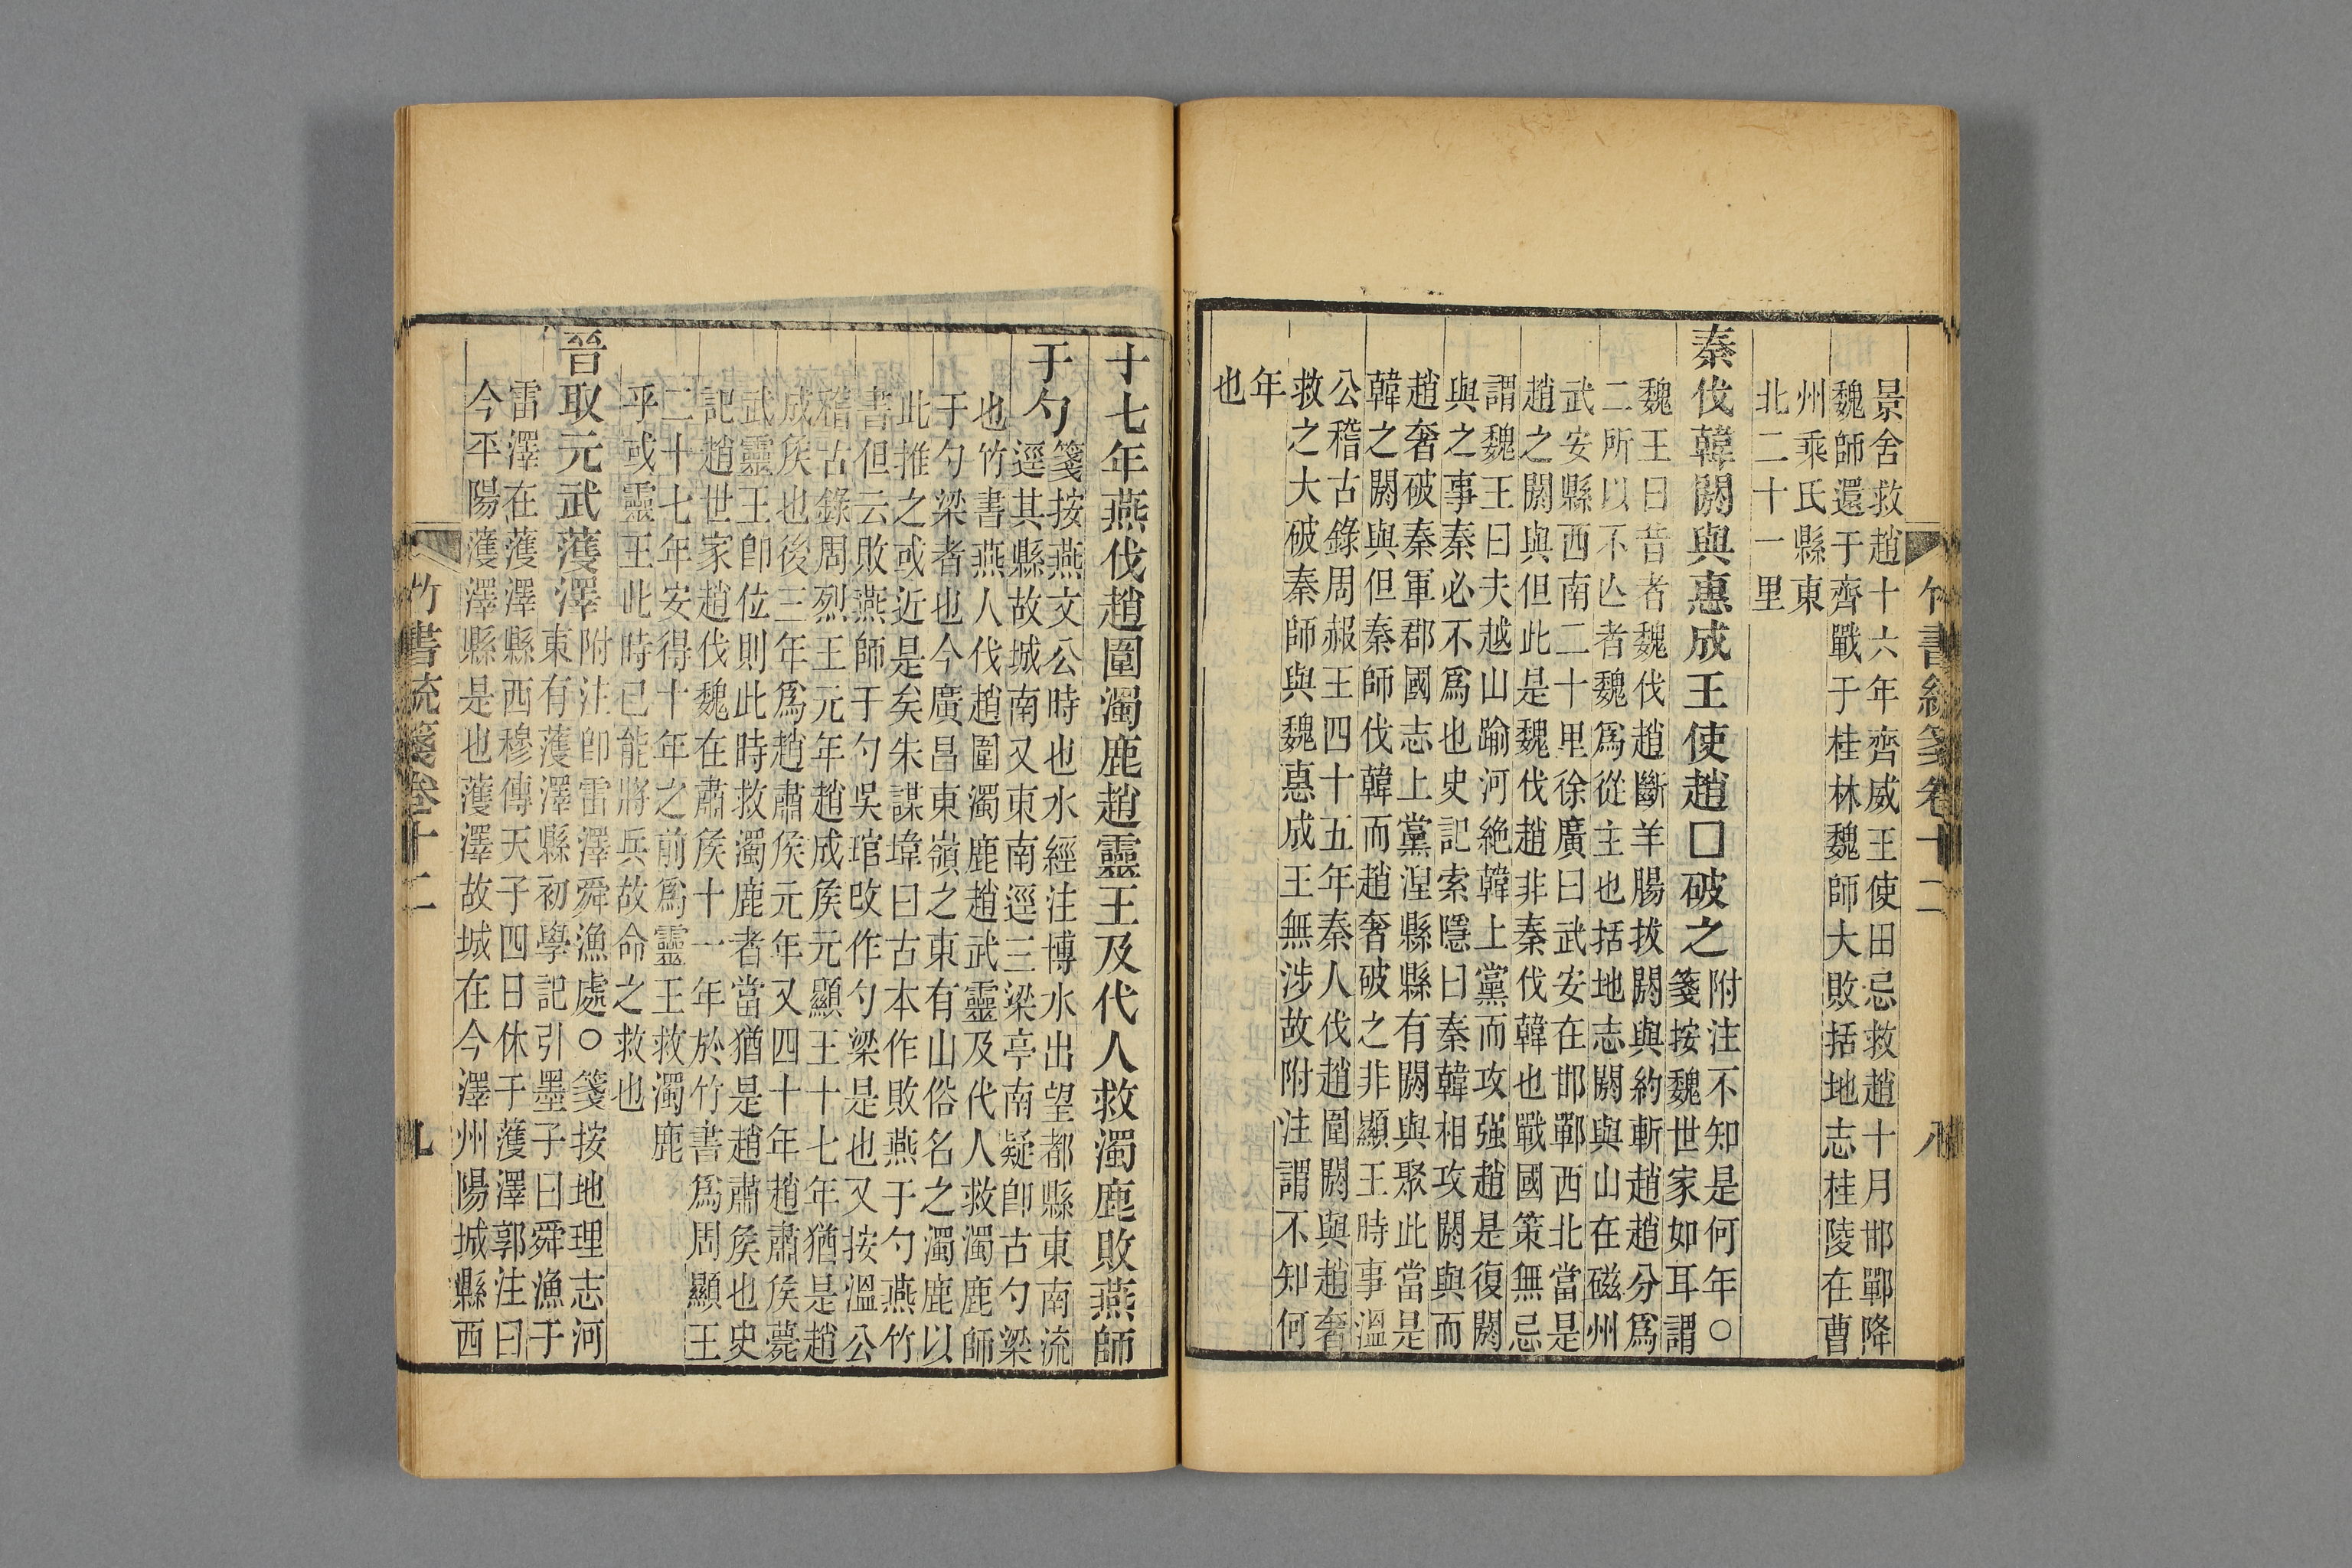 竹書統箋卷十二
八
景舍救趙十六年齊威王使田忌救趙十月邯鄲降
魏師還于齊戰于桂林魏師大敗括地志桂陵在曹
州乘氏縣東
北二十一里
秦伐韓閼與惠成王使趙□破之
附注不知是何年○
箋按魏世家如耳謂
魏王曰昔者魏伐趙斷羊腸拔閼與約斬趙趙分爲
二所以不亾者魏爲從主也括地志閼與山在磁州
武安縣西南二十里徐廣曰武安在邯鄲西北當是
趙之閼與但此是魏伐趙非秦伐韓也戰國策無忌
謂魏王曰夫越山踰河絶韓上黨而攻强趙是復閼
與之事秦必不爲也史記索隱曰秦韓相攻閼與而
趙奢破秦軍郡國志上黨涅縣縣有閼與聚此當是
韓之閼與但秦師伐韓而趙奢破之非顯王時事溫
公稽古錄周赧王四十五年秦人伐趙圍閼與趙奢
救之大破秦師與魏惠成王無涉故附注謂不知何
年
也
十七年燕伐趙圍濁鹿趙靈王及代人救濁鹿敗燕師
于勺
箋按燕文公時也水經注博水出望都縣東南流
逕其縣故城南又東南逕三梁亭南疑卽古勺梁
也竹書燕人伐趙圍濁鹿趙武靈及代人救濁鹿師
于勺梁者也今廣昌東嶺之東有山俗名之濁鹿以
此推之或近是矣朱謀㙔曰古本作敗燕于勺燕竹
書但云敗燕師于勺吳琯改作勺梁是也又按溫公
稽古錄周烈王元年趙成矦元顯王十七年猶是趙
成矦也後三年爲趙肅矦元年又四十年趙肅矦薨
武靈王卽位則此時救濁鹿者當猶是趙肅矦也史
記趙世家趙伐魏在肅矦十一年於竹書爲周顯王
二十七年安得十年之前爲靈王救濁鹿
乎或靈王此時已能將兵故命之救也
晉取元武濩澤
附注卽雷澤舜漁處○箋按地理志河
東有濩澤縣初學記引墨子曰舜漁于
雷澤在濩澤縣西穆傳天子四日休于濩澤郭注曰
今平陽濩澤縣是也濩澤故城在今澤州陽城縣西
竹書統箋卷十二
九